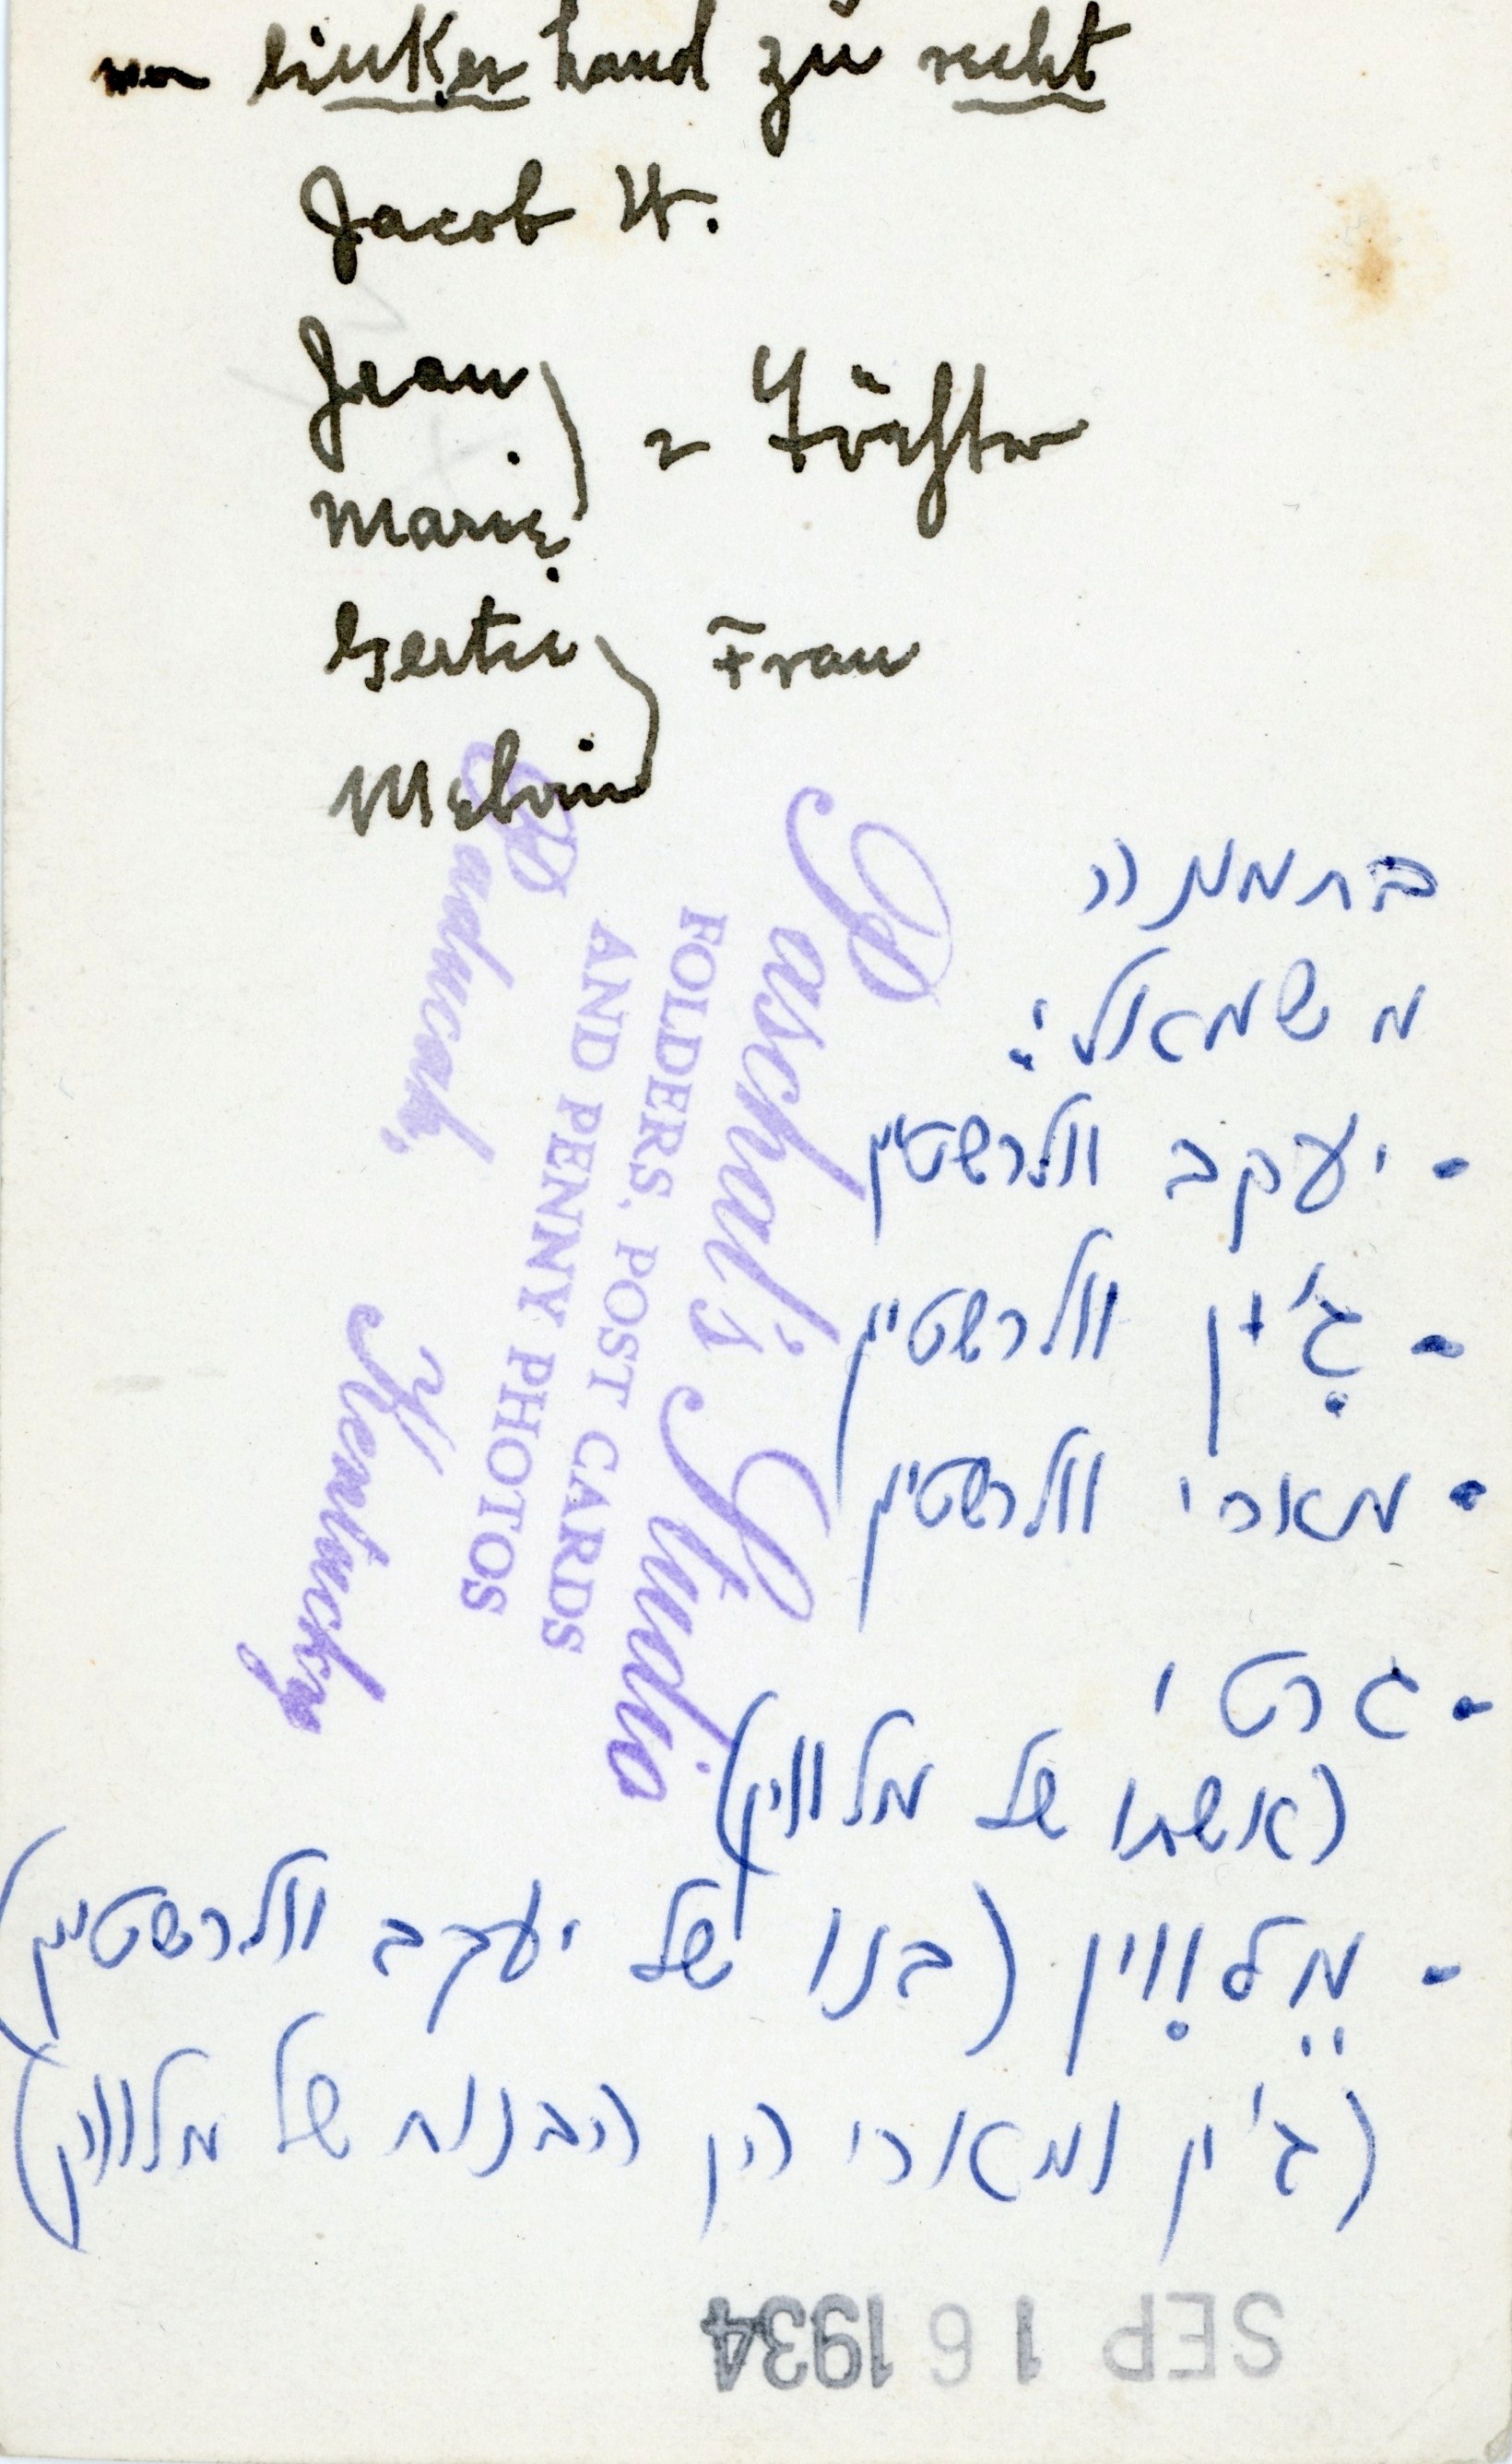 von linker hand zu recht
Jacob W.
Jean
2 Töchter
Marie
Gertie
Frau
Melvin
Paschal's Studio
FOLDERS, POST CARDS
AND PENNY PHOTOS
Paducah, Kentucky
בתמונה
משמאל:
- יעקב וולרשטיין
- ג'ין וולרשטיין
- מארי וולרשטיין
- גרטי
(אשתו של מלווין)
- מֵלוִוין (בנו של יעקב וולרשטיין)
(ג'ין ומארי הן הבנות של מלווין)
SEP 16 1934